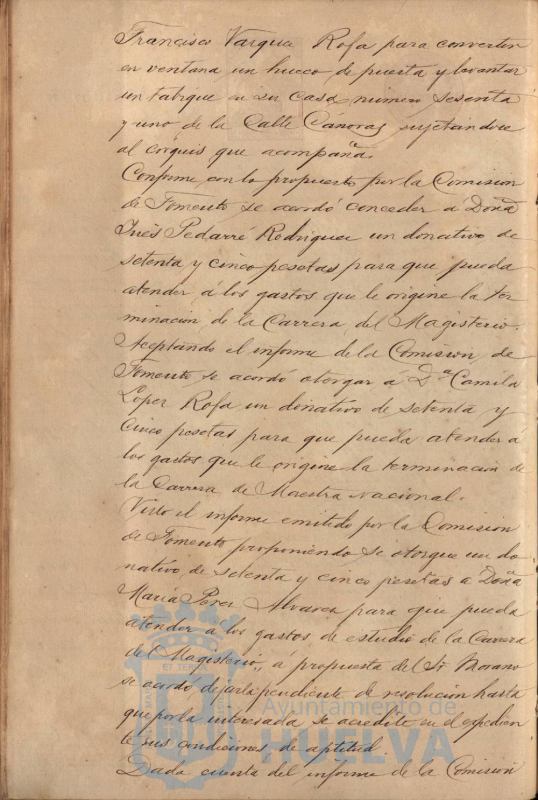 Francisco Vargas Rofa para convertir
en ventana un hueco de puerta y levantar
un tabique en su casa número sesenta
y uno de la Calle Cánovas sujetandose
al cróquis que acompaña.
Conforme con lo propuesto por la Comision
de Fomento se acordó conceder á Doña
Inés Pedarré Rodriguez un donativo de
setenta y cinco pesetas para que pueda
atender á los gastos que le origine la ter
minacion de la Carrera del Magisterio.
Aceptando el informe de la Comision de
Fomento se acordó otorgar á D.ª Camila
López Rofa un donativo de setenta y
cinco pesetas para que pueda atender á
los gastos que le origine la terminacion de
la Carrera de Maestra Nacional.
Visto el informe emitido por la Comision
de Fomento proponiendo se otorgue un do
nativo de setenta y cinco pesetas a Doña
María Perez Alvarez para que pueda
atender á los gastos de estudio de la Carrera
del Magisterio, á propuesta del Sr. Morano
se acordó dejarla pendiente de resolucion hasta
que por la interesada se acredite en el expedien
te sus condiciones de aptitud.
Dada cuenta del informe de la Comision
Ayuntamiento de
HUELVA